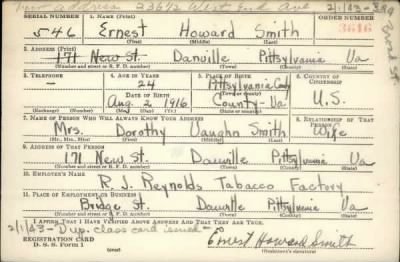 New address 23642 West End Ave 2/1/43 - 389 Broad St.
SERIAL NUMBER 1. NAME (Print) ORDER NUMBER
546 Ernest Howard Smith 3646
(First) (Middle) (Last)
2. ADDRESS (Print)
171 New St. Danville Pittsylvania Va
(Number and street or R. F. D. number) (Town) (County) (State)
3. TELEPHONE 4. AGE IN YEARS 5. PLACE OF BIRTH 6. COUNTRY OF CITIZENSHIP
- 24 Pittsylvania Cnty
DATE OF BIRTH (Town or county)
Aug. 2, 1916 County - Va U.S.
(Exchange) (Number) (Mo.) (Day) (Yr.) (State or country)
7. NAME OF PERSON WHO WILL ALWAYS KNOW YOUR ADDRESS 8. RELATIONSHIP OF THAT PERSON
Mrs. Dorothy Vaughn Smith Wife
(Mr., Mrs., Miss) (First) (Middle) (Last)
9. ADDRESS OF THAT PERSON
171 New St. Danville Pittsylvania Va
(Number and street or R. F. D. number) (Town) (County) (State)
10. EMPLOYER'S NAME
R. J. Reynolds Tobacco Factory
11. PLACE OF EMPLOYMENT OR BUSINESS
Bridge St. Danville Pittsylvania Va
(Number and street or R. F. D. number) (Town) (County) (State)
I AFFIRM THAT I HAVE VERIFIED ABOVE ANSWERS AND THAT THEY ARE TRUE.
2/1/43 - Dup. class card issued -
REGISTRATION CARD
D. S. S. Form 1 (over) Ernest Howard Smith
(Registrant's signature)